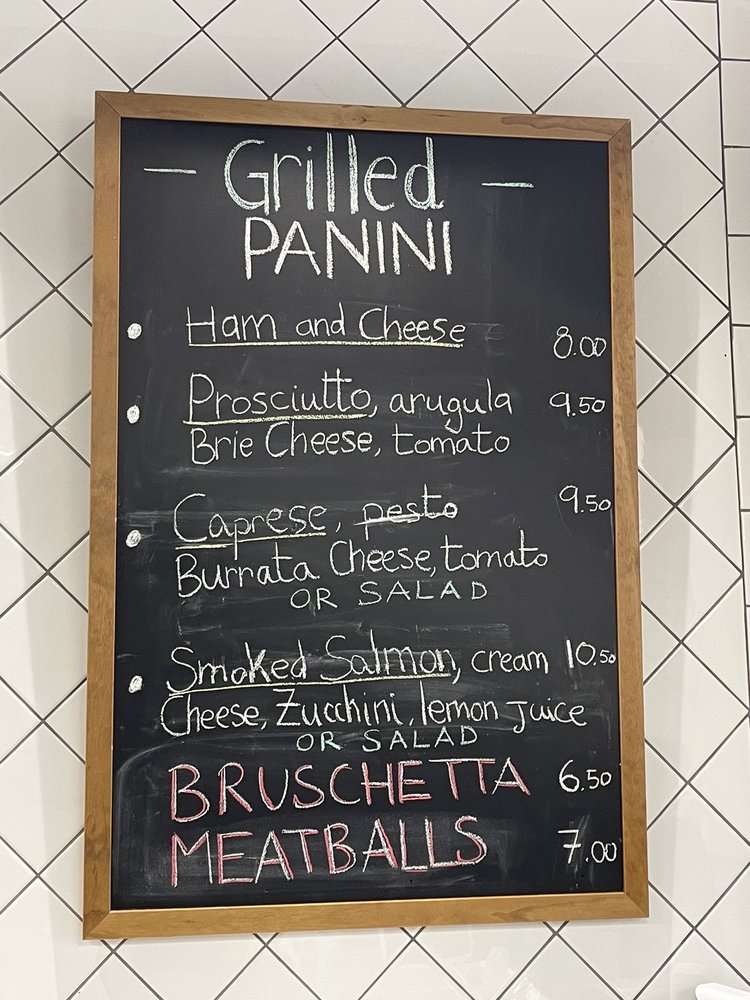 — Grilled —
PANINI
• Ham and Cheese 8.00
• Prosciutto, arugula 9.50
Brie Cheese, tomato
• Caprese, pesto 9.50
Burrata Cheese, tomato
OR SALAD
• Smoked Salmon, cream 10.50
Cheese, Zucchini, lemon Juice
OR SALAD
BRUSCHETTA 6.50
MEATBALLS 7.00